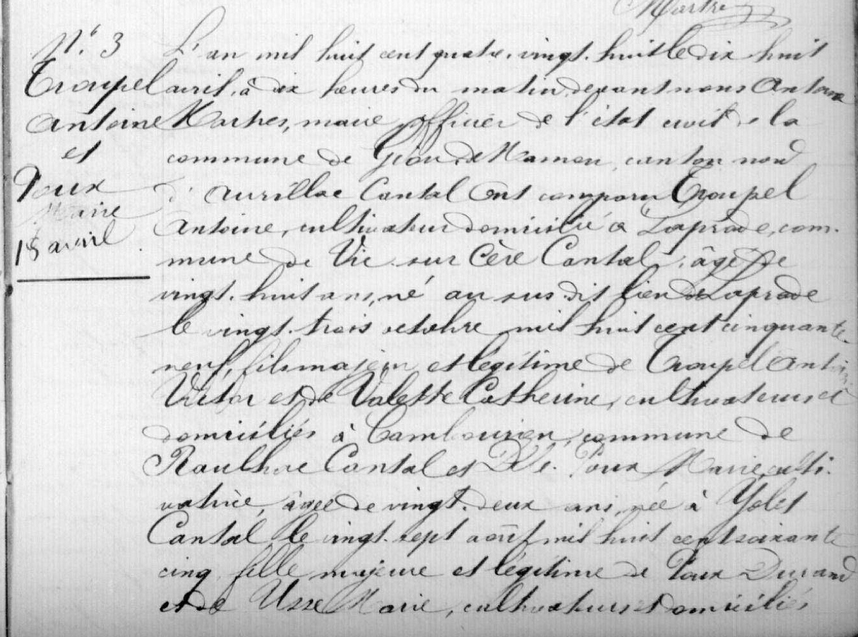 Martres
N° 3
Troupel
Antoine
et
Poux
Marie
18 avril
L'an mil huit cent quatre-vingt-huit le dix huit
avril, à dix heures du matin, devant nous Antoine
Martres, maire officier de l'état civil de la
commune de Giou-de-Mamou, canton nord
d'Aurillac Cantal Ont comparu Troupel
Antoine, cultivateur domicilié à Laprade, com-
mune de Vic-sur-Cère Cantal, âgé de
vingt-huit ans, né au susdit lieu de Laprade
le vingt-trois octobre mil huit cent cinquante-
neuf, fils majeur et légitime de Troupel Antoine
Victor et de Valette Catherine, cultivateurs et
domiciliés à commune de
Raulhac Cantal et Dlle. Poux Marie, culti-
vatrice, âgée de vingt-deux ans, née à Yolet
Cantal le vingt-sept août mil huit cent soixante
cinq fille majeure et légitime de Poux Durand
et de Usse Marie, cultivateurs et domiciliés